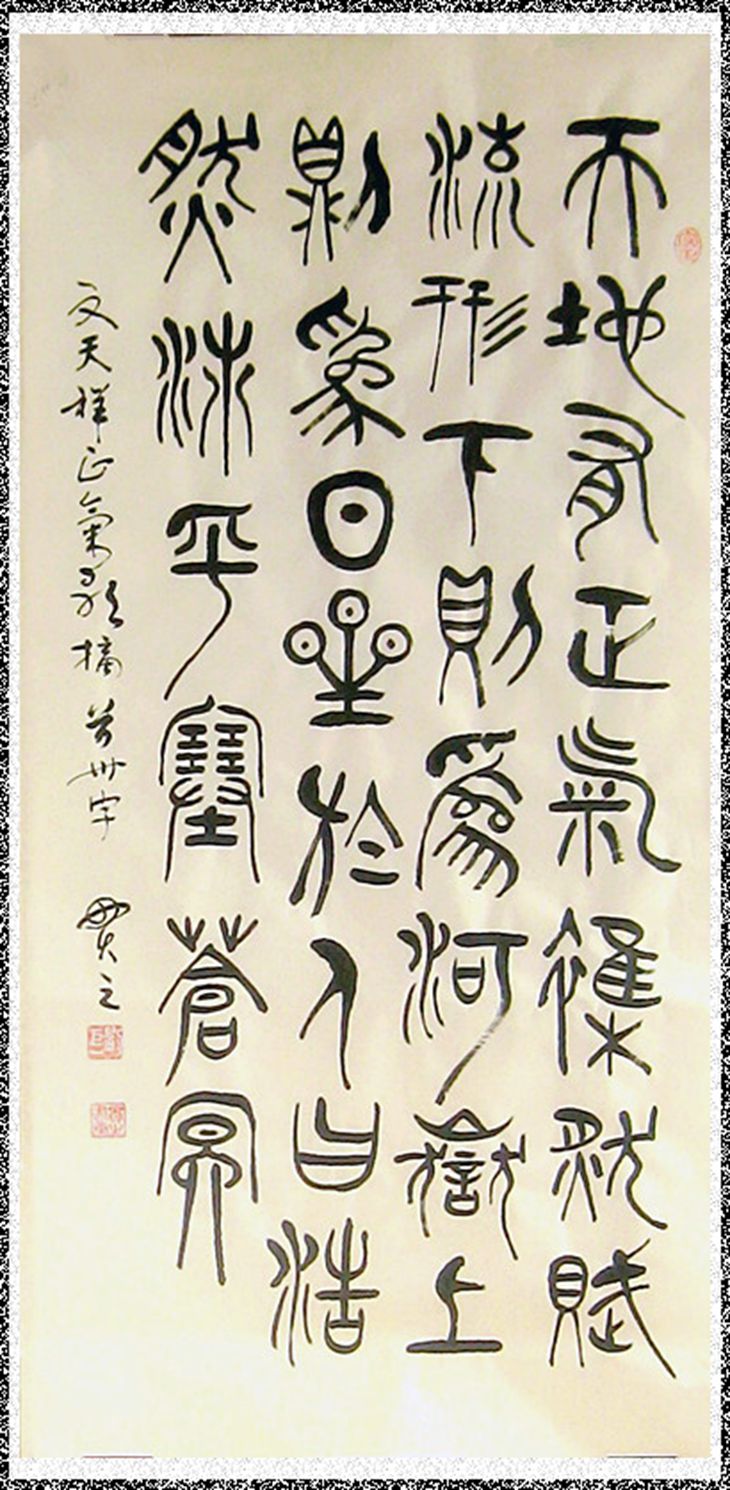 天地有正氣雜然賦
流形下則為河嶽上
則為日星於人曰浩
然沛乎塞蒼冥
文天祥正氣歌摘首卅字 貫之